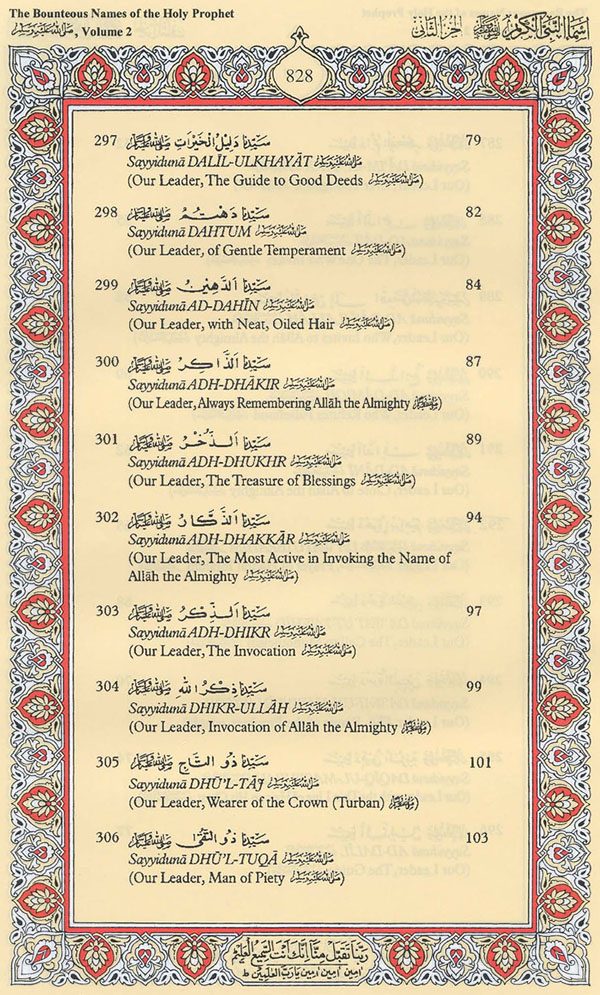 The Bounteous Names of the Holy Prophet
ﷺ, Volume 2
اسماء النبي الكريم ﷺ الجزء الثاني
828
297 سَيِّدُنَا دَلِيلُ الْخَيْرَاتِ ﷺ 79
Sayyidunā DALĪL-ULKHAYĀT ﷺ
(Our Leader, The Guide to Good Deeds ﷺ)
298 سَيِّدُنَا دَهْتَمٌ ﷺ 82
Sayyidunā DAHTUM ﷺ
(Our Leader, of Gentle Temperament ﷺ)
299 سَيِّدُنَا الدَّهِينُ ﷺ 84
Sayyidunā AD-DAHĪN ﷺ
(Our Leader, with Neat, Oiled Hair ﷺ)
300 سَيِّدُنَا الذَّاكِرُ ﷺ 87
Sayyidunā ADH-DHĀKIR ﷺ
(Our Leader, Always Remembering Allāh the Almighty ﷺ)
301 سَيِّدُنَا الذُّخْرُ ﷺ 89
Sayyidunā ADH-DHUKHR ﷺ
(Our Leader, The Treasure of Blessings ﷺ)
302 سَيِّدُنَا الذَّكَّارُ ﷺ 94
Sayyidunā ADH-DHAKKĀR ﷺ
(Our Leader, The Most Active in Invoking the Name of
Allāh the Almighty ﷺ)
303 سَيِّدُنَا الذِّكْرُ ﷺ 97
Sayyidunā ADH-DHIKR ﷺ
(Our Leader, The Invocation ﷺ)
304 سَيِّدُنَا ذِكْرُ اللهِ ﷺ 99
Sayyidunā DHIKR-ULLĀH ﷺ
(Our Leader, Invocation of Allāh the Almighty ﷺ)
305 سَيِّدُنَا ذُو التَّاجِ ﷺ 101
Sayyidunā DHŪ'L-TĀJ ﷺ
(Our Leader, Wearer of the Crown (Turban) ﷺ)
306 سَيِّدُنَا ذُو التُّقَىٰ ﷺ 103
Sayyidunā DHŪ'L-TUQĀ ﷺ
(Our Leader, Man of Piety ﷺ)
ربنا تقبل منا انك انت السميع العليم
امين امين امين يا رب العلمين ط